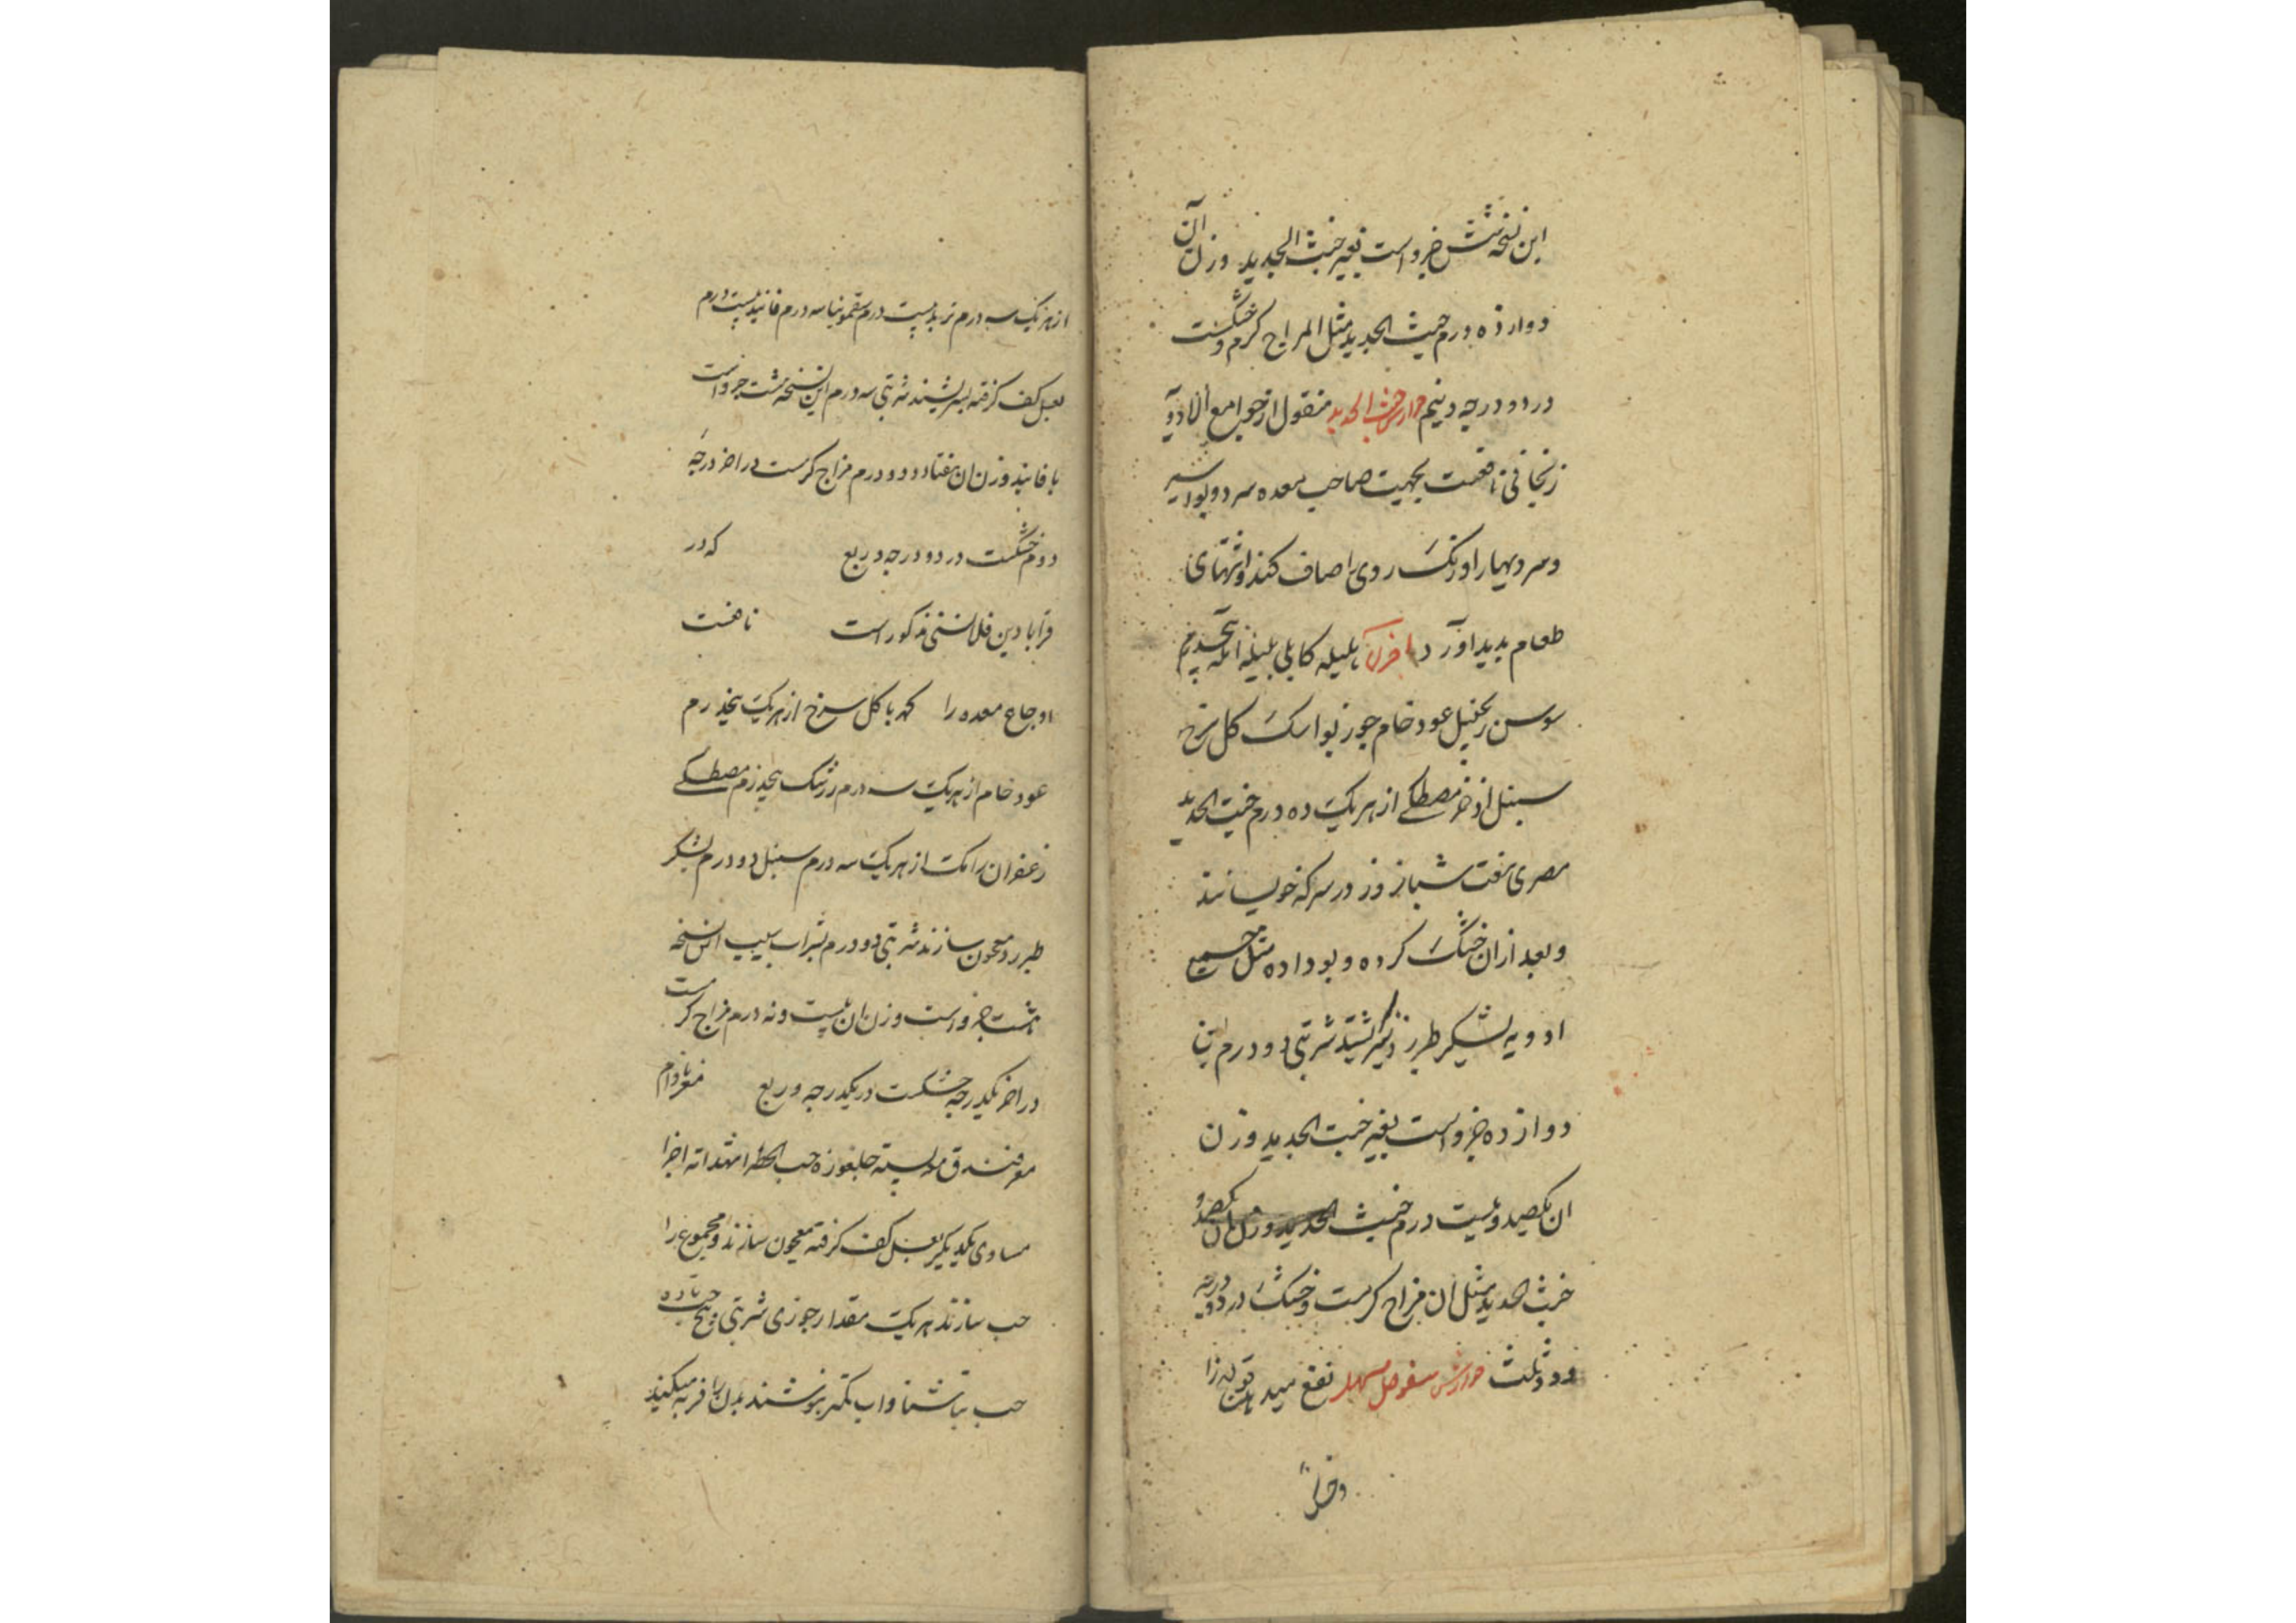 این نسخه شش جزو است بغیر خبث الحدید وزن آن
دوازده درم خبث الحدید مثل المزاج گرم و خشکست
در دو درجه و نیم جوارش خبث الحدید منقول از جوامع الادویه
زنجانی نافعست بجهت صاحب معده سرد و بواسیر
و سردیها را و رنگ روی را صاف کند و اشتهای
طعام بدید آورد اخلاط هلیله کابلی بلیله آمله
سوسن زنجبیل عود خام جوز بوا سک کل سرخ
سنبل اذخر مصطکی از هر یک ده درم خبث الحدید
مصری هفت شبانروز در سرکه خویسانند
و بعد از ان خشک کرده و بو داده مثل جمیع
ادویه بشکر طبرزد بسرشند شربتی دو درم این
دوازده جزو است بغیر خبث الحدید وزن
ان یکصد و بیست درم خبث الحدید وزن ان یکصد و
خبث الحدید مثل ان مزاج گرمست و خشک در دو درجه
و دو ثلث جوارش سفرجل مسهل نفع میدهد قولنج را
از هر یک سه درم تربد بیست درم سقمونیا سه درم فانید بیست درم
بعسل کف گرفته بسرشند شربتی سه درم این نسخه هشت جزو است
با فانید وزن ان هفتاد و دو درم مزاج گرمست در اخر درجه
دوم خشکست در دو درجه و ربع که در
قرابادین قلانسی مذکور است نافعست
اوجاع معده را کهربا کل سرخ از هر یک پنجدرم
عود خام از هر یک سه درم زرشک پنجدرم مصطکی
زعفران رامک از هر یک سه درم سنبل دو درم بشکر
طبرزد معجون سازند شربتی دو درم بشراب سیب این نسخه
هشت جزو است وزن ان بیست و نه درم مزاج گرمست
در اخر یکدرجه خشکست در یکدرجه و ربع مغز بادام
مغز فندق پسته جلغوزه حب الخضرا شهدانه اجزا
مساوی یکدیگر بعسل کف گرفته معجون سازند و مجموع را
حب سازند هر یک مقدار جوزی شربتی پنج حب تا ده
حب ناشتا و اب بنوشند بدن را فربه میکند